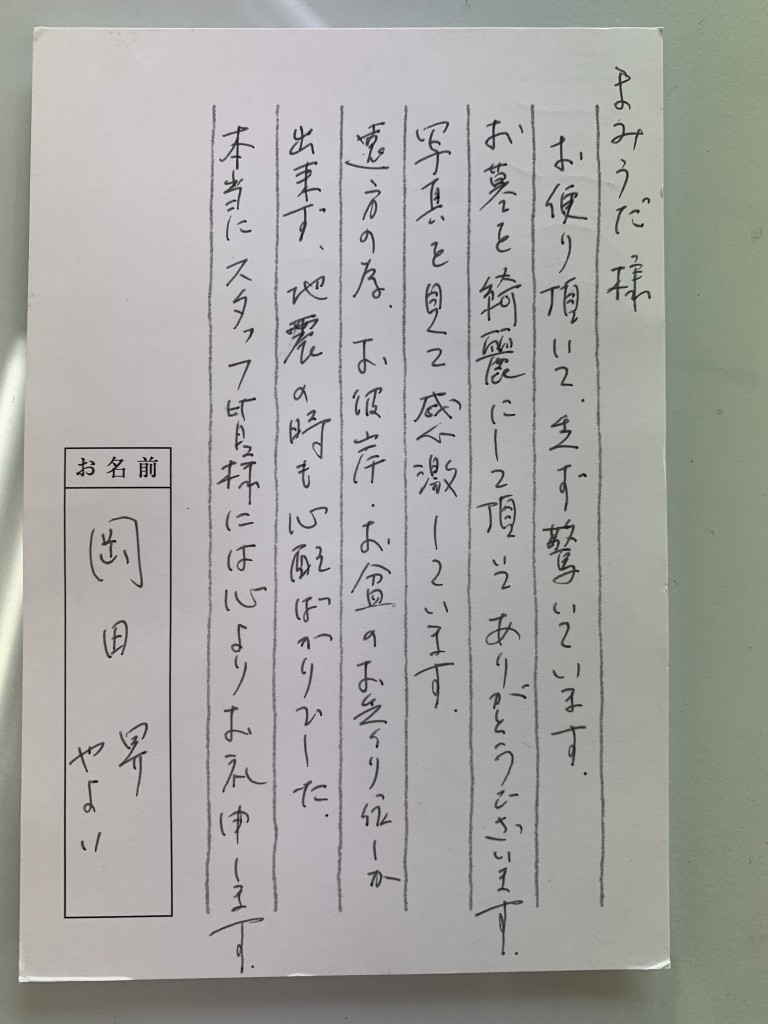 まみうだ様
お便り頂いて、先ず驚いています。
お墓を綺麗にして頂いてありがとうございます。
写真を見て感激しています。
遠方の為、お彼岸・お盆のお参り位しか
出来ず、地震の時も心配ばかりでした。
本当にスタッフ皆様には心よりお礼申します。
お名前
岡田 昇
やよい